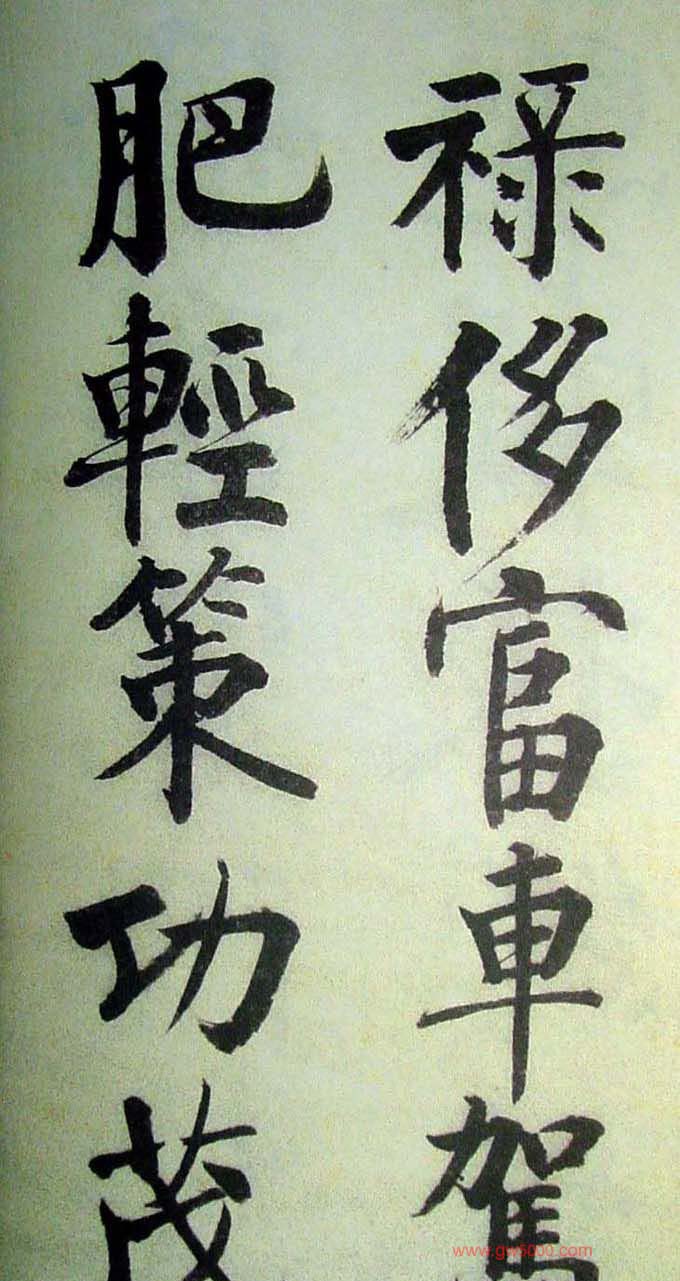 祿侈富車駕
肥輕策功茂
www.gw5000.com